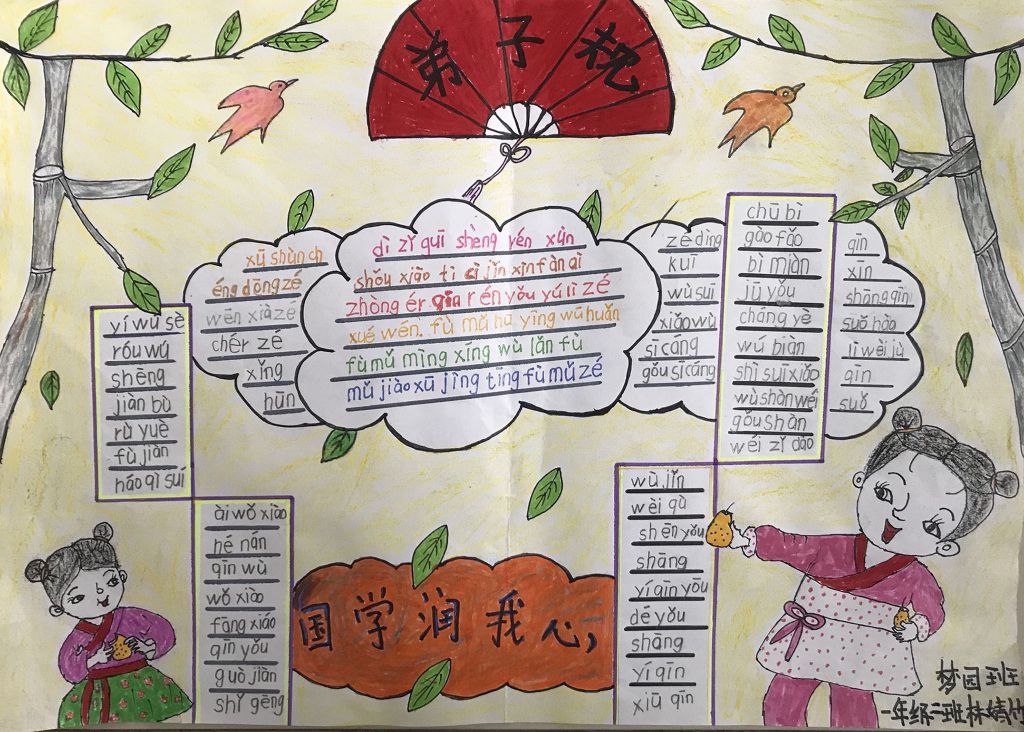 弟子规
dì zǐ guī shèng rén xùn
shǒu xiào tì cì jǐn xìn fàn ài
zhòng ér qīn rén yǒu yú lì zé
xué wén. fù mǔ hū yīng wù huǎn
fù mǔ mìng xíng wù lǎn fù
mǔ jiào xū jìng tīng fù mǔ zé
xū shùn ch
éng dōng zé
wēn xià zé
chér zé
xǐng
hūn
yí wū sè
róu wú
shēng
jiàn bù
rù yuè
fù jiàn
háo qì suí
ài wǒ xiào
hé nán
qīn wù
wǒ xiào
fāng xiáo
qīn yǒu
guò jiàn
shǐ gēng
zé dìng
kuī
wù suī
xiǎo wù
sī cáng
gǒu sī cáng
chū bì
gào fǎo
bì miàn
jū yǒu
cháng yè
wú biàn
shì suī xiǎo
wù shàn wéi
gǒu shàn
wéi zǐ dào
qīn
xīn
shāng qīn
suǒ hào
lì wèi jù
qīn
suǒ
wù jǐn
wèi qù
shēn yǒu
shāng
yí qīn yōu
dé yǒu
shāng
yí qīn
xiū qīn
国学润我心,
梦园班
一年级二班林婧竹